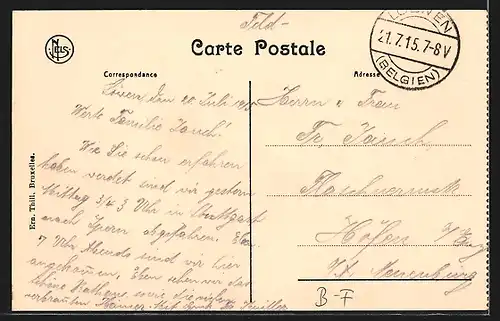 Feld-
LÖWEN
21.7.15.7-8V
(BELGIEN)
NELS
Carte Postale
Correspondance
Adresse
Ern. Thill, Bruxelles.
Löwen den 20 Juli 1915
Werte Familie Jauch!
Wie Sie schon erfahren
haben werdet sind wir gestern
Mittag 3/4 3 Uhr in Stuttgart
nach Ypern abgefahren. Eben
7 Uhr Abends sind wir hier
angekommen. Eben sehen wir das
schöne Rathaus, sowie die vielen
verbrannten Häuser.
Herrn u Frau
Fr. Jauch
Flaschnermstr
Höfen a/Enz
O/A. Neuenburg
B-F